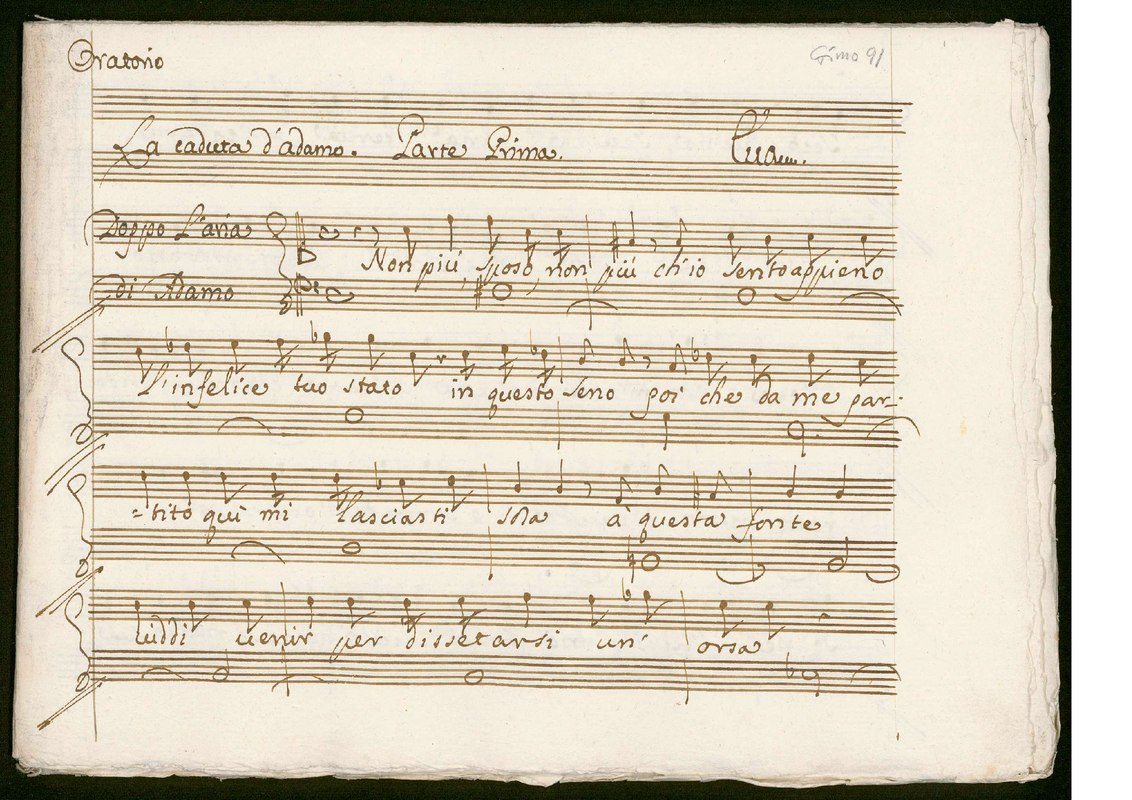 Oratorio
Gimo 91
La caduta d'adamo. Parte Prima.
Doppo l'aria
Non più, sposo, non più ch'io sento appieno
di Adamo
L'infelice tuo stato in questo seno poi che da me par-
-tito qui mi lasciasti sola à questa fonte
uiddi uenir per dissetarsi un' orsa